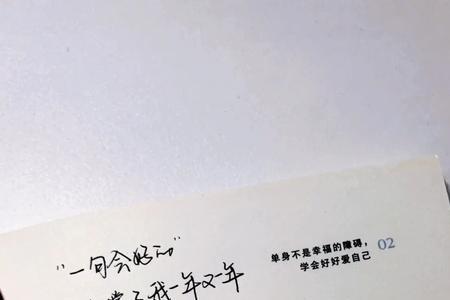 “一句会好的”
我一年又一年
单身不是幸福的障碍，
学会好好爱自己
02